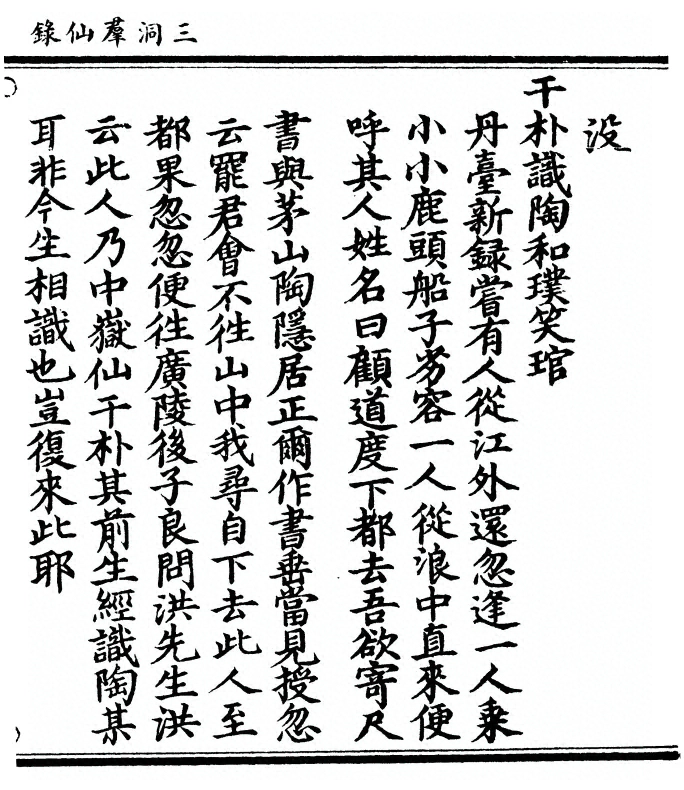 三洞羣仙錄
没
干朴識陶和璞笑琯
丹臺新録嘗有人從江外還忽逢一人乗
小小鹿頭船子劣容一人從浪中直來便
呼其人姓名曰顧道度下都去吾欲寄尺
書與茅山陶隱居正爾作書垂當見授忽
云罷君會不徃山中我尋自下去此人至
都果忽忽便徃廣陵後子良問洪先生洪
云此人乃中嶽仙干朴其前生經識陶某
耳非今生相識也豈復來此耶